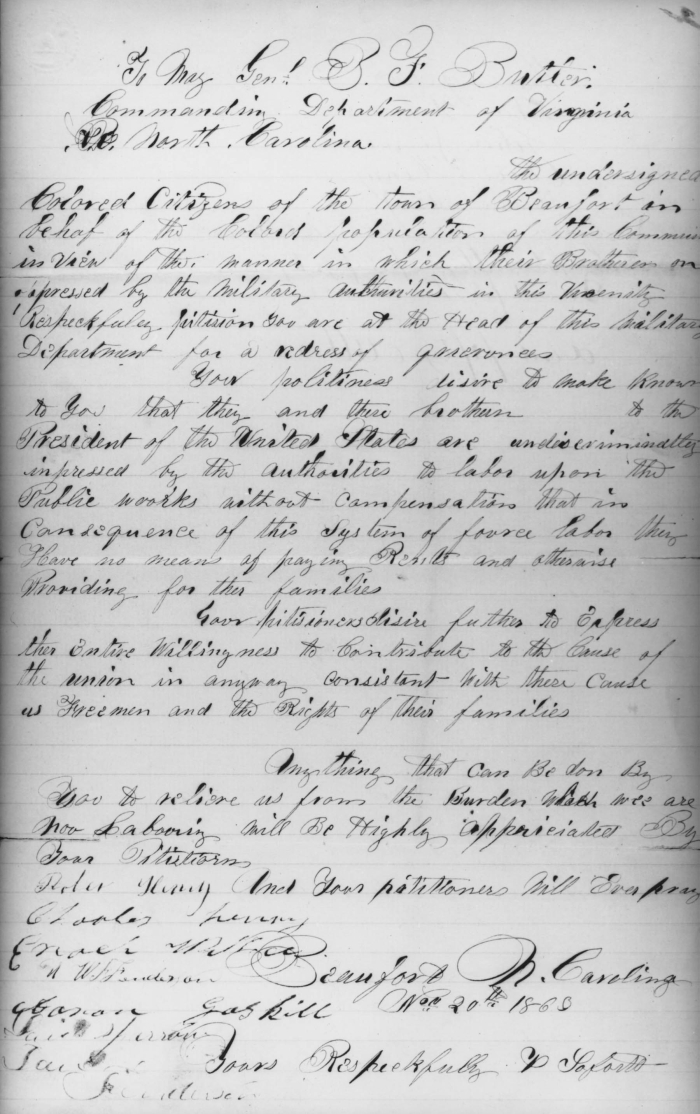 To Maj Genl B. F. Butler.
Commanding Department of Virginia
North Carolina.
the undersigned
Colored Citizens of the town of Beaufort in
behaf of the Colord population of this Commun
in view of the manner in which their Brotheren on
oppressed by the military authurities in this Vicenity
Respeckfuley pitision you are at the Head of this military
Department for a redress of grievences
Your politness disire to make known
to you that they and there brothern to the
President of the United States are undiscriminately
inpressed by the authorities to labor upon the
Public woorks without compensation that in
Consequence of this System of fource labor they
Have no means of paying Rents and otherwise
Providing for ther families
Your pitisioners disire futher to Express
ther Entire Willingness to Contribute to the Cause of
the union in anyway consistant with there cause
as Freemen and the Rights of their families
Anything that can Be don By
You to relieve us from the Burden which wee are
nou Labooring will Be Highly Appriciated By
Your Pitistiorn
And Your pitistioners Will Ever pray
Charles Henry
Enoch
W Henderson Beaufort N. Carolina
Gaskill Nov 20th 1863
Yours Respeckfully & Soforth
Henderson